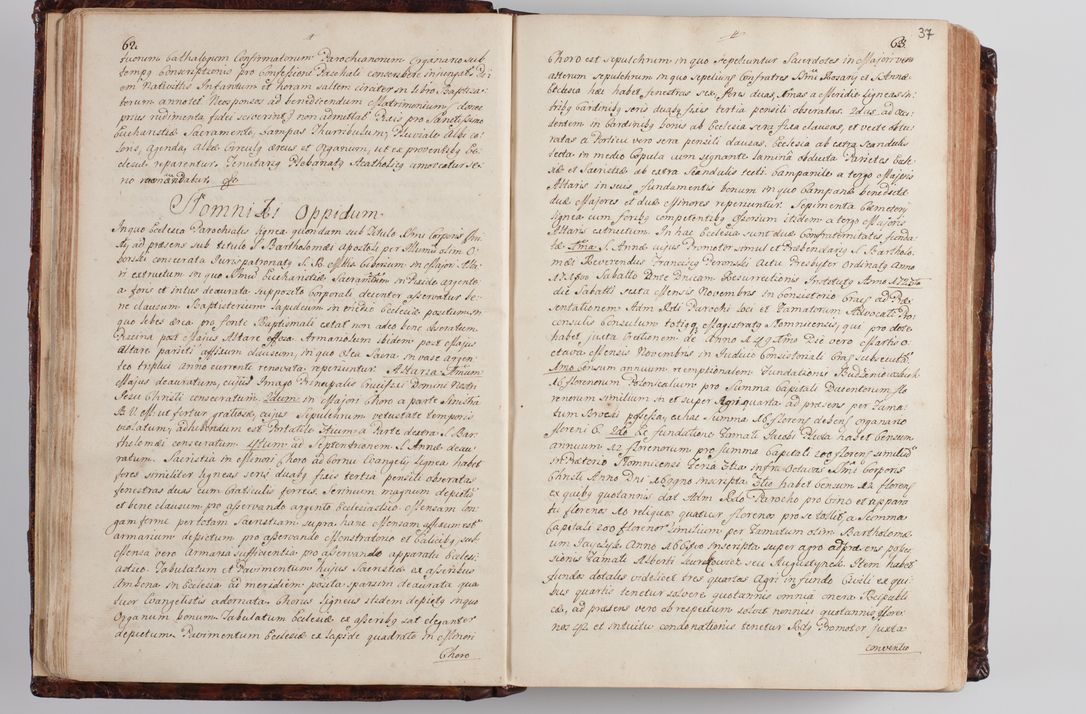 62.
tuorum Cathalogum Confirmatorum Parochianorum Organario sub
tempq Conscriptionis pro Confessione Paschali conscribere injungat, Di-
em Nativitis Infantum et horam saltem circiter in Libro Baptiza-
torum annotet Neosponsos ad benedicendum Matrimonium, donec
prius rudimenta fidei sciverint, non admittat. Pixis pro Sanctissimo
Eucharistiæ Sacramento, Lampas Thuribulum, Pluviale albi co-
loris, agenda, Albæ Cinguly æreus et Organum, ut ex proventibq Ec-
clesiæ reparentur. Tenutarq Plebanatq Acatholicq amoveatur se-
rio mandatur.
Słomniki Oppidum
In quo Ecclesia Parochialis lignea quondam sub titulo Xbri Corporis Chri-
sti, ad præsens sub titulo S. Bartholomæi Apostoli per Illmum olim O-
borski consecrata Jurispatronatq S. R. Mttis Ciborium in Majori Alta-
ri extructum in quo Smũ Eucharistiæ Sacramentum in Pixide argentea
a foris et intus deaurata supposito Corporali decenter asservatur be-
ne clausum Baptisterium lapideum in medio Ecclesiæ positum in
quo lebes ærea pro fonte Baptismali extat non adeo bene exornatum.
Piscina post Majus Altare fossa Armariolum ibidem post Majus
Altare parieti affixum clausum, in quo Olea Sacra in vase argen-
teo triplici anno currente renovata reperiuntur. Altaria Primum
Majus deauratum, cujus Imago Principalis Crucifixi Domini Nostri
Jesu Christi consecratum. 2dum in Majori Choro a parte sinistra
B. V. M. ut fertur gratiosæ, cujus Sepulchrum vetustate temporis
violatum, Exhibendum est Portatile 3tium a Parte dextra S. Bar-
tholomæi consecratum 4tum ad Septentrionem S. Annæ deau-
ratum. Sacristia in Minori Choro ad cornu Evangely lignea habet
fores similiter ligneas seris duabq fixis tertia pensili obseratas
fenestras duas cum Craticulis ferreis. Scrinium magnum depictũ
et bene clausum pro asservando argento Ecclesiastico Mensam lon-
gam ferme per totam Sacristiam supra hanc Mensam affixum est
armarium depictum pro asservando Monstratorio et Calicibq sub
Mensa vero Armaria sufficientia pro asservando apparatu Ecclesi-
astico. Tabulatum et Pavimentum hujus Sacristiæ ex asseribus
Ambona in Ecclesia ad meridiem posita sparsim deaurata qua-
tuor Evangelistis adornata. Chorus ligneus itidem depictq in quo
Organum bonum Tabulatum Ecclesiæ ex asseribq sat eleganter
depictum. Pavimentum Ecclesiæ ex lapide quadrato in Minori
Choro
63.
37
Choro est sepulchrum in quo sepeliuntur Sacerdotes in Majori vero
alterum sepulchrum in quo sepeliunt Confratres Smi Rosary et S. Annæ
Ecclesia hæc habet fenestras sex, fores duas, Unas a Meridie ligneas in-
tribq Cardinibq seris duabq fixis tertia pensili obseratas. 2das ad Occi-
dentem in Cardinibq bonis ab Ecclesia sera fixa clausas, et vecte obfir-
matas a Porticu vero sera pensili clausas. Ecclesia ab extra Scandulis
tecta in medio Copula cum signante lamina obducta Parietes Eccle-
siæ et Sacristiæ ab extra Scandulis tecti. Campanile a tergo Majoris
Altaris in suis fundamentis bonum in quo Campanæ benedictæ
duæ Majores et duæ Minores reperiuntur. Sepimenta Cæmetery
lignea cum foribq competentibq Ossorium itidem a tergo Majoris
Altaris extructum. In hac Ecclesia sunt duæ Confraternitates funda-
tæ Prima S. Annæ cujus Promotor simul et Præbendarig S. Bartholo-
mæi Reverendus Franciscq Peronski Actu Presbyter Ordinatq Anno
1718vo Sabbatto Ante Dnicam Resurrectionis Institutq Anno 1727mo
die Sabatti sexta Mensis Novembris in Consistorio Crac: ad Præ-
sentationem Adm Rndi Parochi Loci et Famatorum Advocati Pro-
consulis Consulum totiq Magistratq Słomnicensis, qui pro dote
habet juxta Erectionem de Anno 1649 Ano Die vero Martis O-
ctava Mensis Novembris in Judicio Consistoriali Crac: subsecutã
Primo Censum annuum reemptionalem Fundationis Budzanowskich
16 florenorum Polonicalium pro Summa Capitali Ducentorum flo-
renorum similium in et super Agri quarta ad præsens per Fama-
tum Brocki possessa, ex hac Summa 16 florens debens organario
floreni 6. 2do Ex fundatione Famati Jacobi Pluta habet Censum
annuum 12 florenorum pro summa Capitali 200 florens similiũ
in Prætorio Słomnicensi Feria 3tia infra Octavas Xmi Corporis
Christi Anno Dni 1609no inscripta 3tio habet Censum 12 florens
ex quibq quotannis dat Adm Rndo Parocho pro Vino et appara-
tu florenos 10 reliquos quatuor florenos pro se tollit, a Summa
Capitali 200 florenor similium per Famatum olim Bartholomæ-
um Anno 1668vo inscripta super agro ad præsens posses-
sionis Famati Alberti seu Augustynek. Item habet
fundos dotalis videlicet tres quartas Agri in fundo Civili ex qui-
bus quartis tenetur solvere quotannis omnia onera Reipubli-
cæ, ad præsens vero ob respectum solvit nonnisi quotannis flore-
nos 42 et intuitu condonationis tenetur Rndq Promotor juxta
conventio